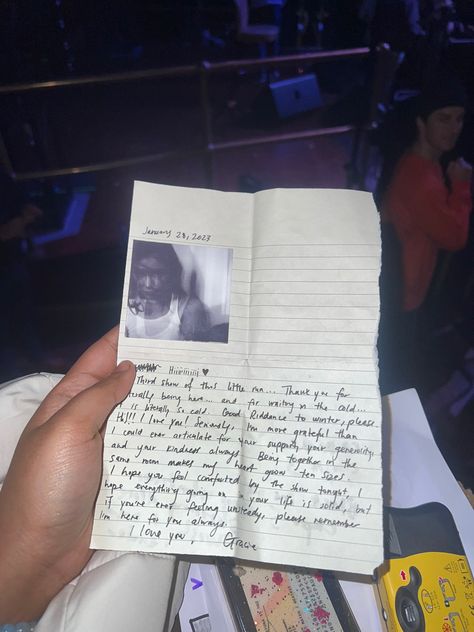 January 28, 2023
Hiiiiiiiii ♥
Third show of this little run... Thank you for
literally being here... and for waiting in the cold...
is literally so cold. Good Riddance to winter, please.
Hi!!! I love you! Seriously, I'm more grateful than
I could ever articulate for your support, your generosity,
and your kindness always. Being together in the
same room makes my heart grow ten sizes.
I hope you feel comforted by the show tonight, I
hope everything going on in your life is solid, but
if you're ever feeling unsteady, please remember
I'm here for you always.
I love you,
Gracie